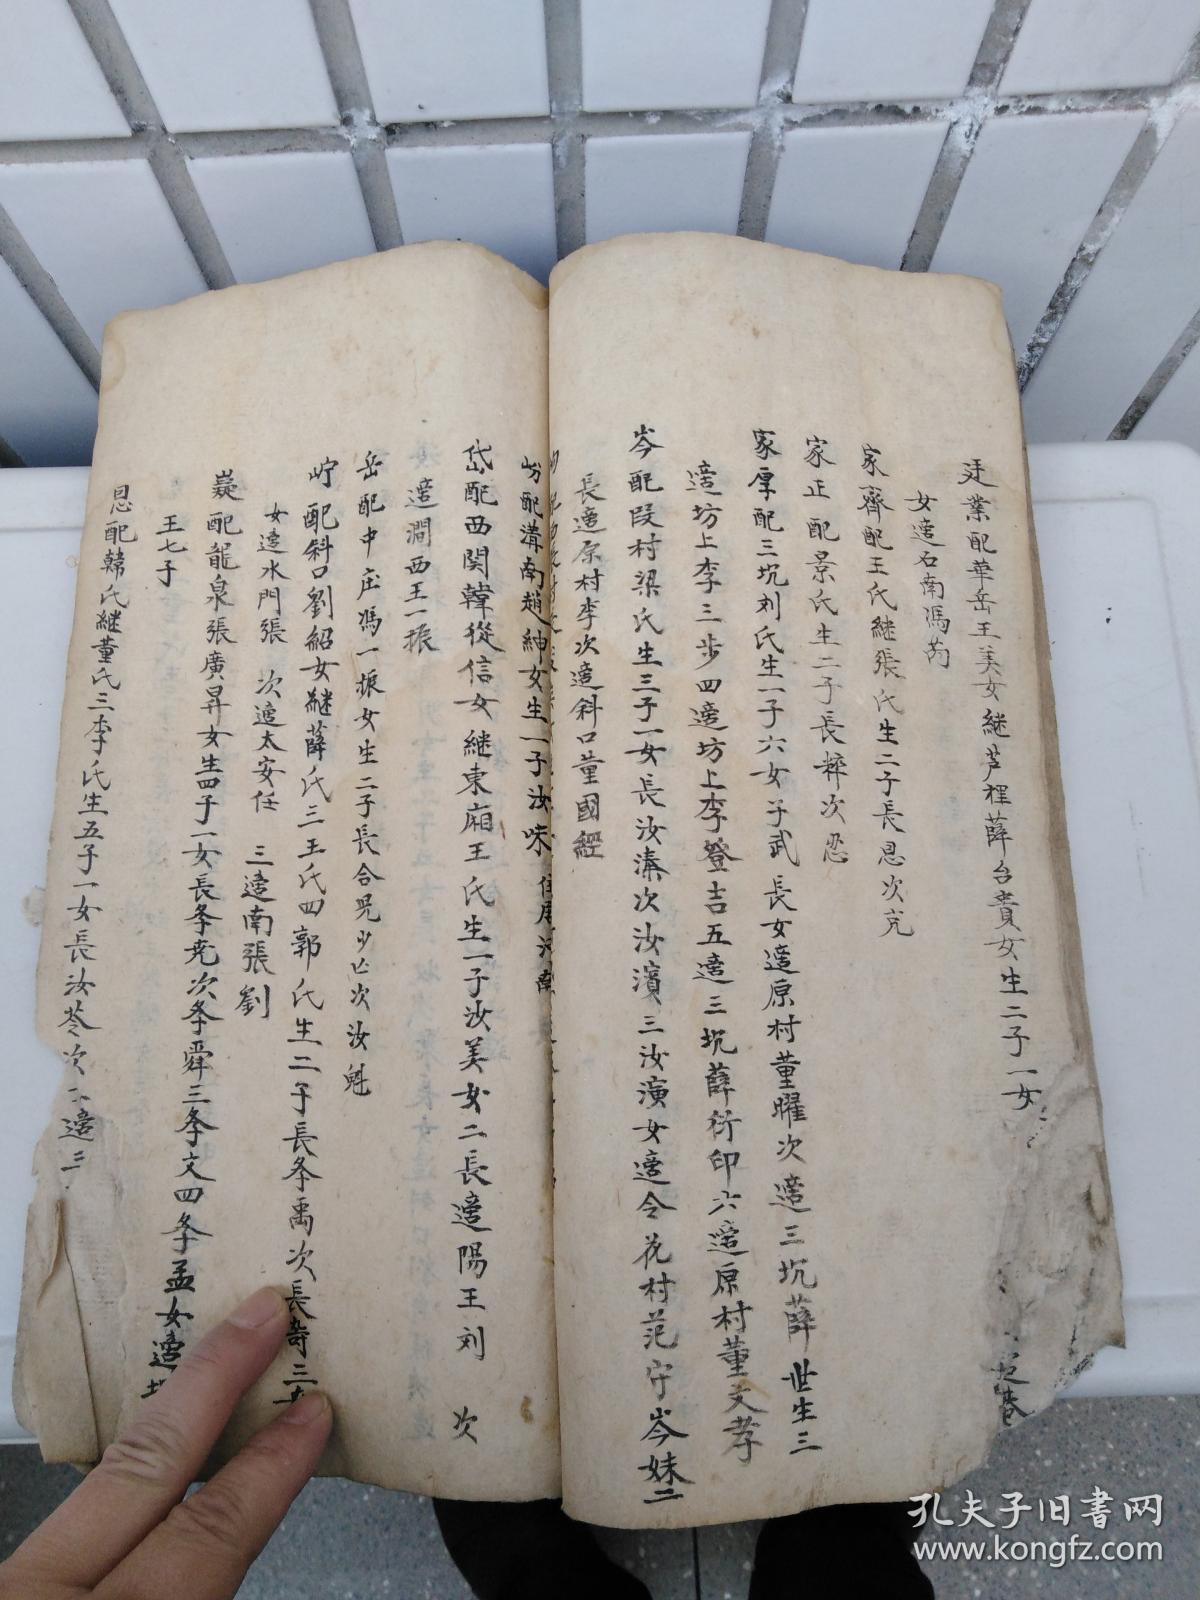 廷業配華岳王美女継芦裡薛台貴女生二子一女
女適石南馮芮
家齊配王氏継張氏生二子長恩次克
家正配景氏生二子長粹次忍
家厚配三坑刘氏生一子六女子武 長女適原村董曜次適三坑薛世生三
適坊上李三步四適坊上李登吉五適三坑薛衍印六適原村董文孝
岑配段村梁氏生三子一女長汝溱次汝濱三汝演女適令花村范守岑妹二
長適原村李次適斜口董國經
㟃配溝南趙紳女生一子汝味 住居河南
岱配西関韓從信女継東廂王氏生一子汝美女二長適陽王刘 次
適澗西王一振
岳配中庄馮一振女生二子長合兕少亡次汝魁
岢配斜口劉紹女継薛氏三王氏四郭氏生二子長夆禹次長奇三
女適水門張 次適太安任 三適南張劉
嶷配龍泉張廣昇女生四子一女長夆尭次夆舜三夆文四夆孟女適
王七子
恩配韓氏継董氏三李氏生五子一女長汝苓次 適三
孔夫子旧書网
www.kongfz.com